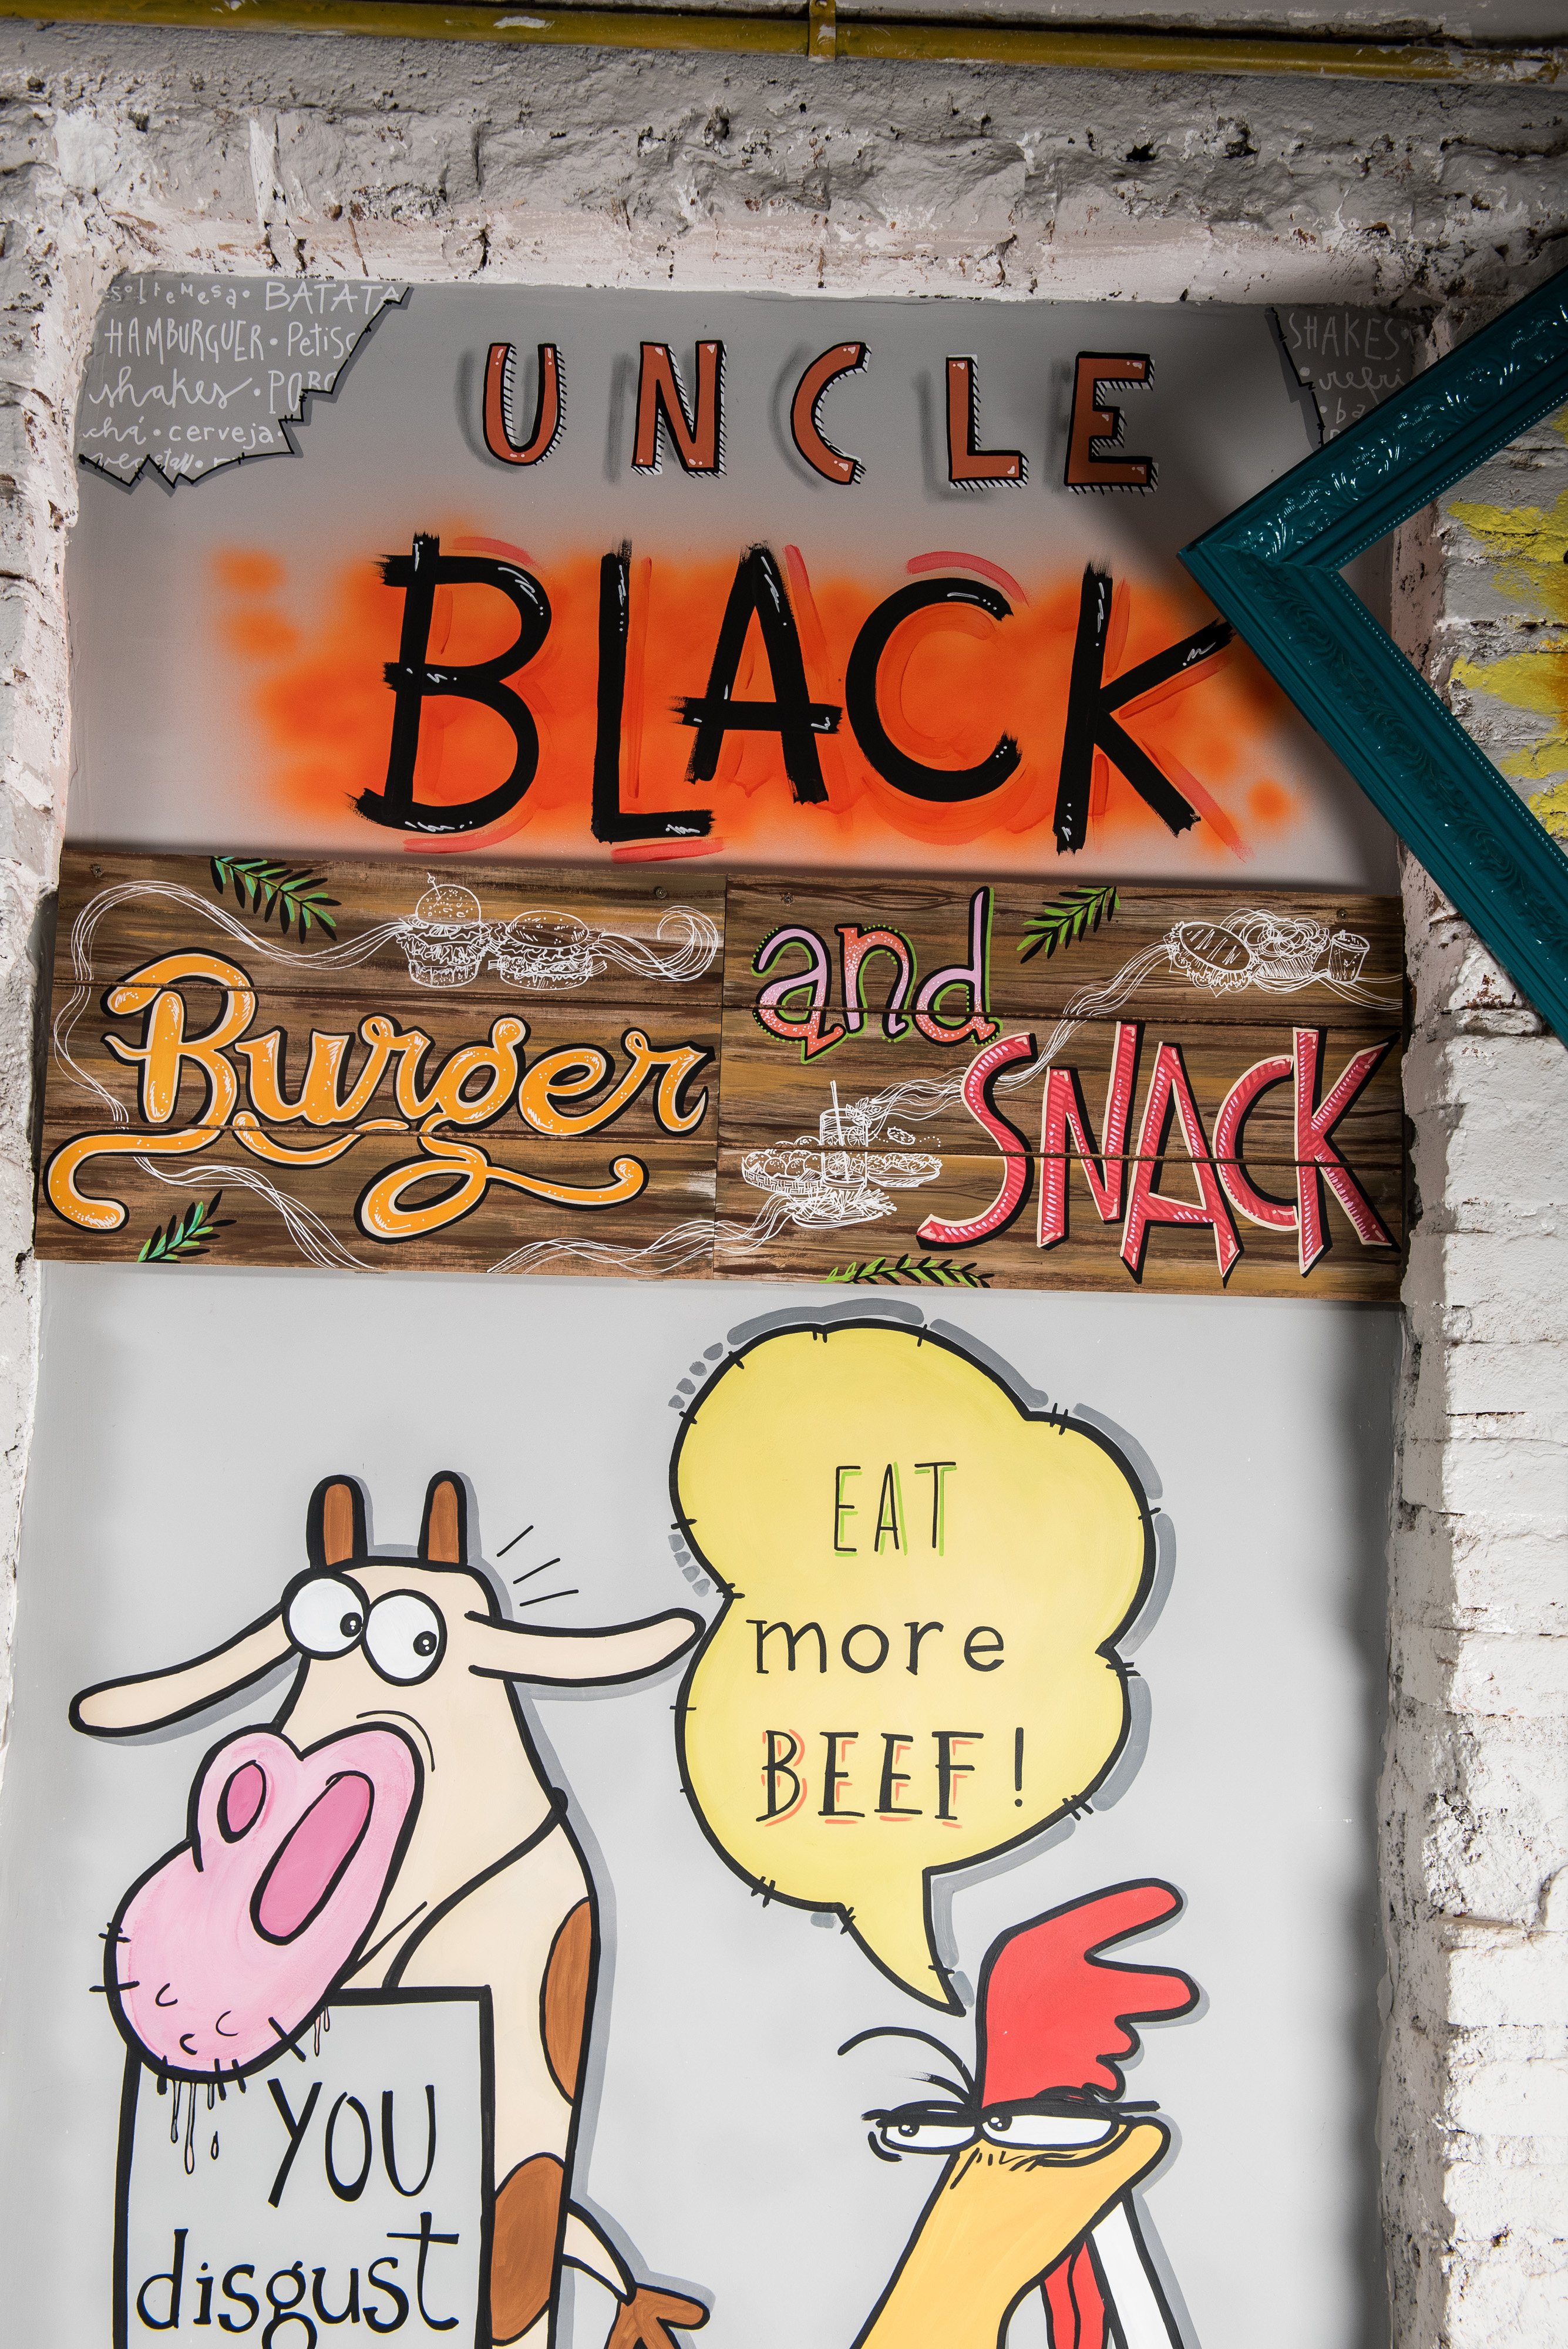 BATATA
HAMBURGUER • Petisc
shakes • PORC
chá • cerveja •
SHAKES •
refri
ba
UNCLE
BLACK
Burger
and
SNACK
EAT
more
BEEF!
YOU
disgust